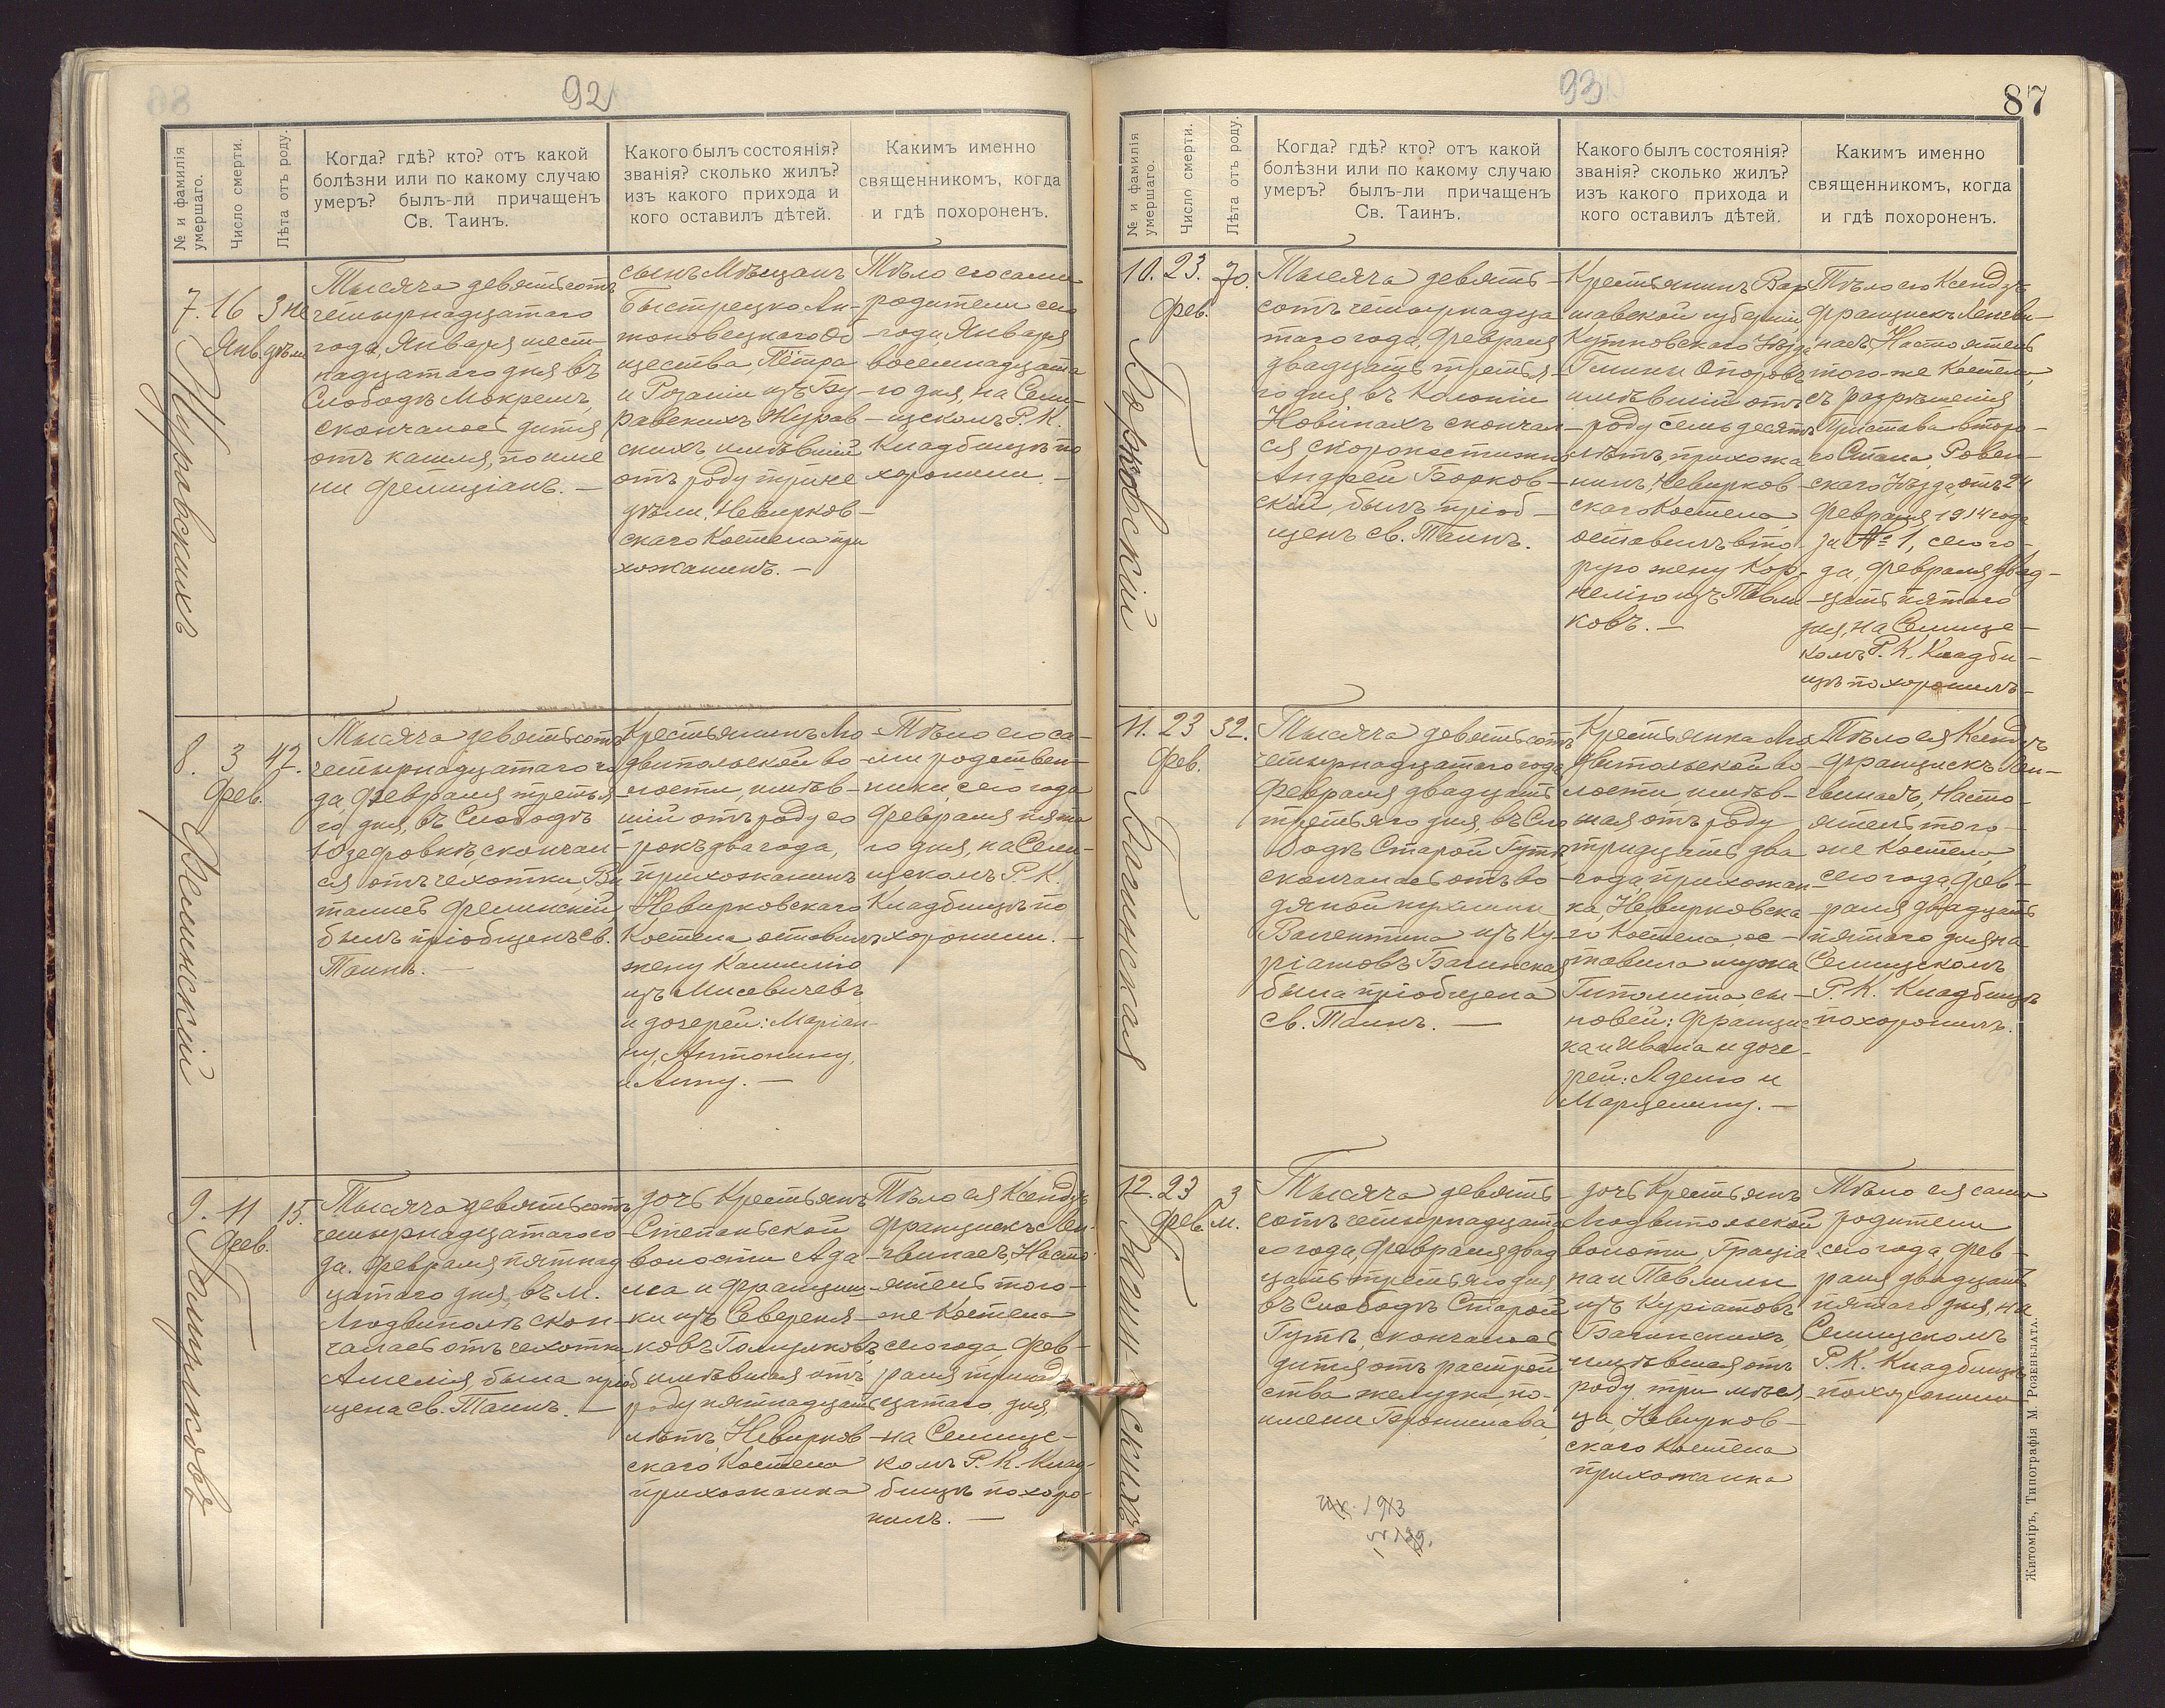 92
№ и фамилія умершаго.
Число смерти.
Лѣта отъ роду.
Когда? гдѣ? кто? отъ какой
болѣзни или по какому случаю
умеръ? былъ-ли причащенъ
Св. Таинъ.
Какого былъ состоянія?
званія? сколько жилъ?
изъ какого прихода и
кого оставилъ дѣтей.
Какимъ именно
священникомъ, когда
и гдѣ похороненъ.
7.
16
Янв.
3 не
дѣли
Журавскихъ
Тысяча девятьсотъ
четырнадцатаго
года, Января шест-
надцатаго дня въ
Слободѣ Мокремъ,
скончалось дитя
отъ кашля, по име
ни Фелиціанъ. —
сынъ Мѣщанъ
Быстрецко Ан-
тоновецкаго Об
щества, Петра
и Розаліи изъ Бу-
равскихъ Журав
скихъ, имѣвшій
отъ роду три не
дѣли, Невирков-
скаго Костела при
хожанинъ. —
Тѣло его сами
родители сего
года Января
восемнадцата
го дня, на Сели-
щскомъ Р. К.
Кладбищѣ по
хоронили. —
8.
3
Фев.
42.
Фелинскій
Тысяча девятьсотъ
четырнадцатаго го
да, Февраля третья
го дня, въ Слободѣ
Юзефовкѣ скончал-
ся отъ чехотки, Ви
талисъ Фелинскій
былъ пріобщенъ Св.
Таинъ. —
Крестьянинъ Лю
двипольской во-
лости, имѣв-
шій отъ роду со
рокъ два года,
прихожанинъ
Невирковскаго
Костела оставилъ
жену Камилію
изъ Мисевичевъ
и дочерей: Маріан-
ну, Антонину,
и Анну. —
Тѣло его са-
ми родствен-
ники, сего года
Февраля пята
го дня, на Сели-
щскомъ Р. К.
Кладбищѣ по
хоронили. —
9.
11
Фев.
15.
Тысяча девятьсотъ
четырнадцатаго го
да. Февраля пятнад
цатаго дня, въ м.
Людвиполѣ скон-
чалась отъ чехотки
Амелія была пріоб
щена Св. Таинъ. —
дочь Крестьянъ
Степаньской
волости Ада
ма и Францишки
изъ Севереня-
ковъ
имѣвшая отъ
роду пятнадцать
лѣтъ, Невирков-
скаго Костела
прихожанка
Тѣло ея Ксендзъ
Францискъ Лен-
гвинасъ, Насто
ятель того-
же Костела
сего года Фев-
раля тринад
цатаго дня,
на Селищс-
комъ Р. К. Клад-
бищѣ похоро-
нилъ. —
93
87
№ и фамилія умершаго.
Число смерти.
Лѣта отъ роду.
Когда? гдѣ? кто? отъ какой
болѣзни или по какому случаю
умеръ? былъ-ли причащенъ
Св. Таинъ.
Какого былъ состоянія?
званія? сколько жилъ?
изъ какого прихода и
кого оставилъ дѣтей.
Какимъ именно
священникомъ, когда
и гдѣ похороненъ.
10.
23.
Фев.
70.
Борковскій
Тысяча девять-
сотъ четырнадца
таго года, Февраля
двадцать третья-
го дня въ Колоніи
Новинахъ скончал-
ся скоропостижно
Андрей Борков-
скій, былъ пріоб-
щенъ Св. Таинъ.
Крестьянинъ Вар
шавской губерніи,
Кутновскаго Уѣзда
Гмины Опоровъ
имѣвшій отъ
роду семьдесятъ
лѣтъ, прихожа
нинъ, Невирков-
скаго Костела
оставилъ вто-
рую жену Кор-
нелію изъ Павли
ковъ. —
Тѣло его Ксендзъ
Францискъ Ленгви-
насъ, Настоятель
того-же Костела,
съ разрѣшенія
Пристава второ-
го Стана, Ровен-
скаго Уѣзда, отъ 24
Февраля 1914 года
за № 1, сего го-
да, Февраля двад-
цать пятаго
дня, на Селищс-
комъ Р. К. Кладби-
щѣ похоронилъ-
11.
23
Фев.
32.
Багинская
Тысяча девятьсотъ
четырнадцатаго года
Февраля двадцать
третьяго дня, въ Сло
бодѣ Старой Гутѣ
скончалась отъ во-
дяной пухлины
Валентина изъ Ку-
ріатовъ Багинская
была пріобщена
Св. Таинъ. —
Крестьянка Лю
двипольской во
лости, имѣв-
шая отъ роду
тридцать два
года, прихожан-
ка, Невирковска
го Костела, ос-
тавила мужа
Гиполита, сы-
новей: Францис
ка и Ивана и доче-
рей: Аделю и
Марцелину. —
Тѣло ея Ксендзъ
Францискъ Лен-
гвинасъ, Насто-
ятель того-
же Костела,
сего года, Фев-
раля двадцать
пятаго дня на
Селищскомъ
Р. К. Кладбищѣ
похоронилъ.
12.
23
Фев.
3
м.
Багинскихъ
Тысяча девять-
сотъ четырнадцата
го года, Февраля двад
цать третьяго дня,
въ Слободѣ Старой
Гутѣ, скончалось
дитя отъ растрой
ства желудка, по-
имени Бронислава,
дочь Крестьянъ
Людвипольской
волости, Граціа
на и Павлины
изъ Куріатовъ
Багинскихъ,
имѣвшая отъ
роду три мѣся
ца, Невирков-
скаго Костела
прихожанка
Тѣло ея сами
родители
сего года, Фев-
раля двадцать
пятаго дня, на
Селищскомъ
Р. К. Кладбищѣ
похоронили
1913
Житоміръ, Типографія М. Розенблата.